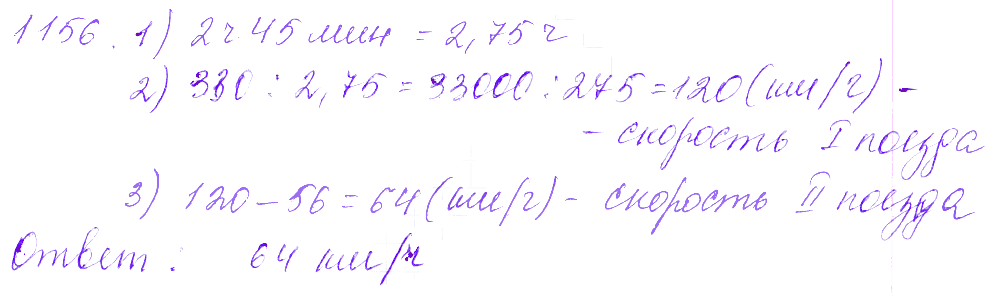 1156. 1) 2ч 45 мин = 2,75 ч
2) 330 : 2,75 = 33000 : 275 = 120 (км/ч) -
- скорость I поезда
3) 120 - 56 = 64 (км/ч) - скорость II поезда
Ответ: 64 км/ч